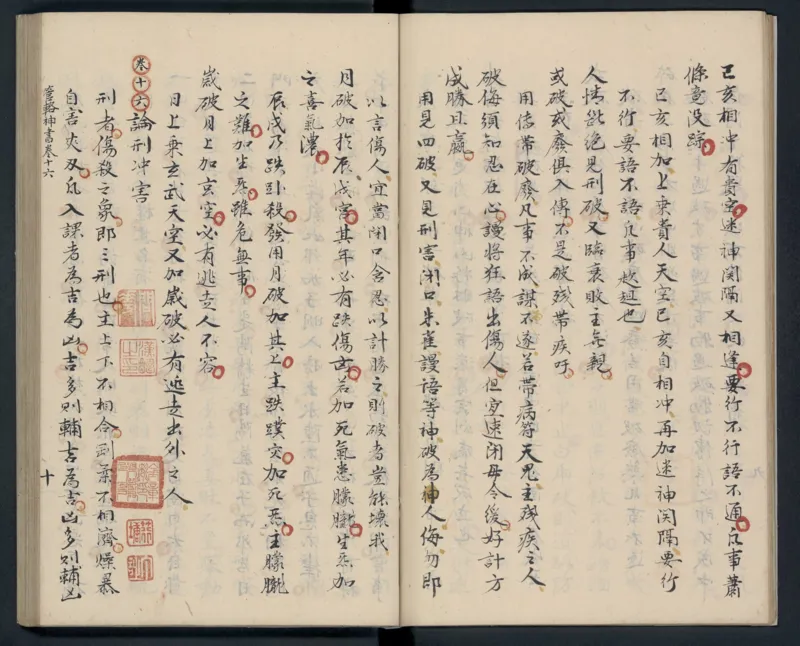 己亥相冲有貴空迷神関隔又相逢要行不行語不通凢事蕭
條竟没踪
己亥相加上乗貴人天空己亥自相冲再加迷神関隔要行
不行要語不語凢事越趄也
人情能絶見刑破又臨衰敗主無親
或破或廢俱入傳不是破残帯疾吁
用傳帯破廢凡事不成謀不遂若帯病符天鬼主残疾之人
破侮須知忍在心謾将狂語出傷人但宜速閉毋令後好計方
成勝旦嬴
用見四破又見刑害閉口朱雀謾語等神破為神人侮勿即
以言傷人宜當閉口含忍以計勝之則破者豈能壊我
月破加於辰戌宫其年必有跌傷凶若加死氣患朦朧生炁加
之喜氣濃
辰戌乃跌卦殺發用月破加其上主跌蹼灾加死炁主朦朧
之難加生炁雖危無事
歲破月上加玄空必有逃走人不容
日上乗玄武天空又加歲破必有逃走出外之人
卷十六 論刑冲害
刑者傷殺之象即三刑也主上下不相合剛柔不相濟燥暴
自害灾双凢入課者為吉為凶吉多則輔吉為吉凶多則輔凶
管輅神書卷十六
十